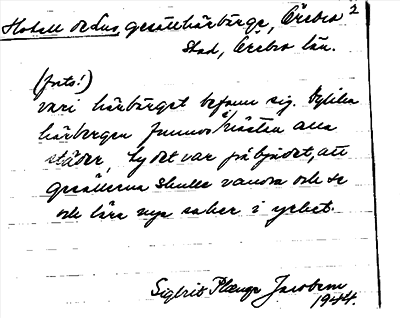 Hotell Örlus, gesällhärbärge, Örebro 2
stad, Örebro län.
(foto!)
vari härbärget befann sig. Dylika
härbergen funnos i nästan alla
städer, ty det var påbjudet, att
gesällerna skulle vandra och se
och lära nya saker i yrket.
Sigbrit Plænge Jacobson
1944.